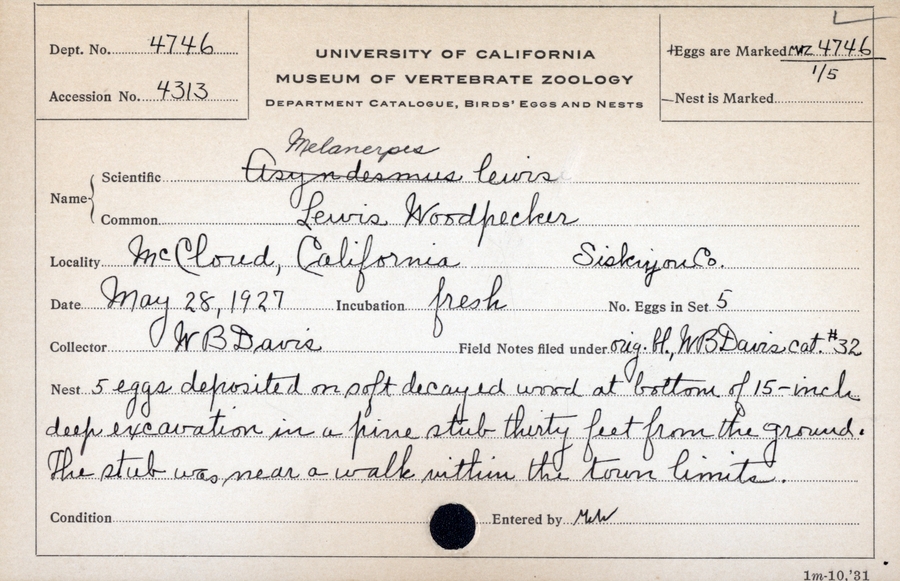 Dept. No. 4746
Accession No. 4313
UNIVERSITY OF CALIFORNIA
MUSEUM OF VERTEBRATE ZOOLOGY
DEPARTMENT CATALOGUE, BIRDS' EGGS AND NESTS
Eggs are Marked MVZ 4746
1/5
Nest is Marked
Melanerpes
Name Scientific Asyndesmus lewis
Common Lewis Woodpecker
Locality McCloud, California Siskiyou Co.
Date May 28, 1927 Incubation fresh No. Eggs in Set 5
Collector W B Davis Field Notes filed under orig. bl., W B Davis cat. #32
Nest 5 eggs deposited on soft decayed wood at bottom of 15-inch
deep excavation in a pine stub thirty feet from the ground.
The stub was near a walk within the town limits.
Condition Entered by
1m-10,'31